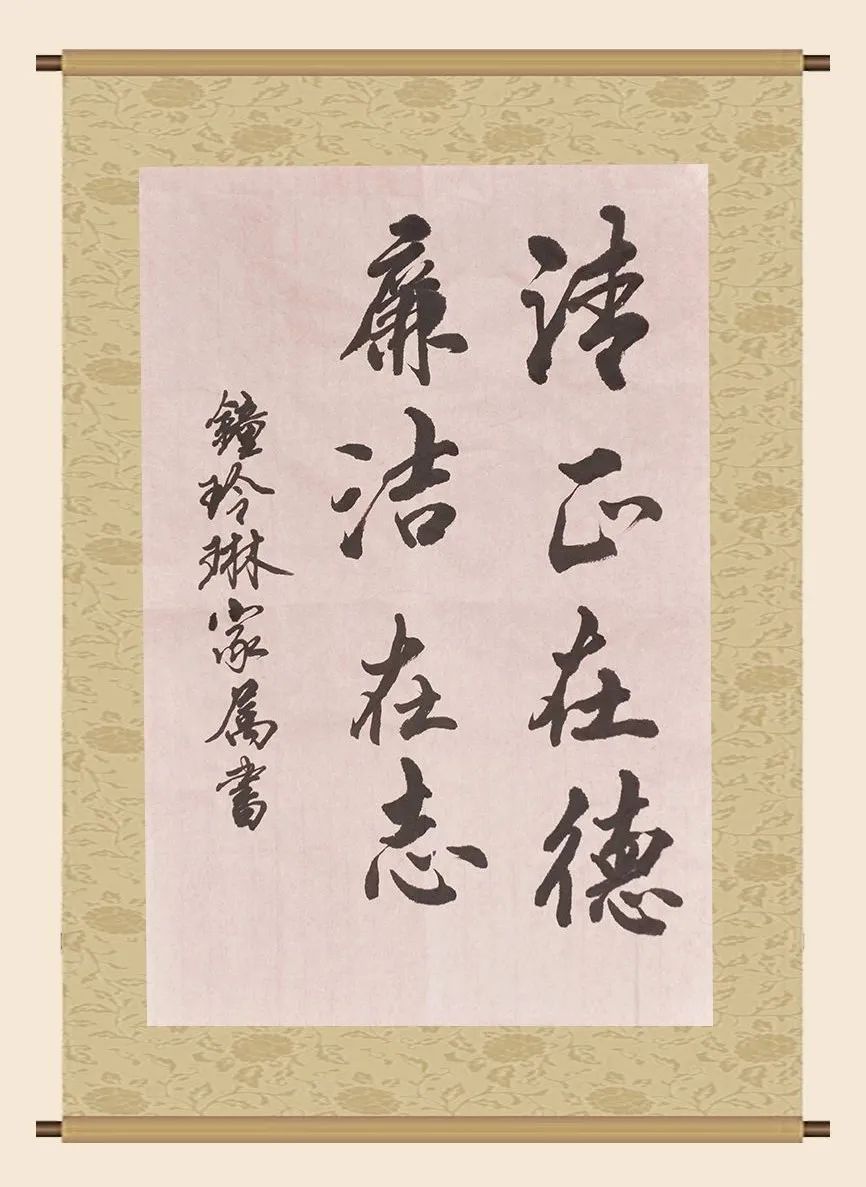 清正在德
廉洁在志
鐘玲琳家属書